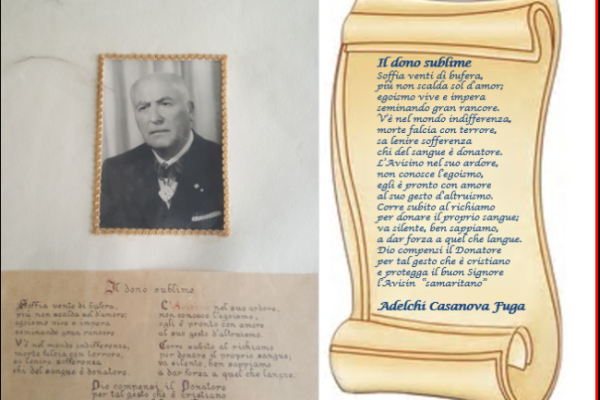 Il dono sublime
Soffia venti di bufera,
più non scalda sol d'amore;
egoismo vive e impera
seminando gran rancore.
V'è nel mondo indifferenza,
morte falcia con terrore,
sa lenire sofferenza
chi del sangue è donatore.
L'Avisino nel suo ardore,
non conosce l'egoismo,
egli è pronto con amore
al suo gesto d'altruismo.
Corre subito al richiamo
per donare il proprio sangue;
va silente, ben sappiamo,
a dar forza a quel che langue.
Dio compensi il Donatore
per tal gesto che è cristiano
Il dono sublime
Soffia venti di bufera,
più non scalda sol d'amor;
egoismo vive e impera
seminando gran rancore.
V'è nel mondo indifferenza,
morte falcia con terrore,
sa lenire sofferenza
chi del sangue è donatore.
L'Avisino nel suo ardore,
non conosce l'egoismo,
egli è pronto con amore
al suo gesto d'altruismo.
Corre subito al richiamo
per donare il proprio sangue;
va silente, ben sappiamo,
a dar forza a quel che langue.
Dio compensi il Donatore
per tal gesto che è cristiano
e protegga il buon Signore
l'Avisin "samaritano"
Adelchi Casanova Fuga